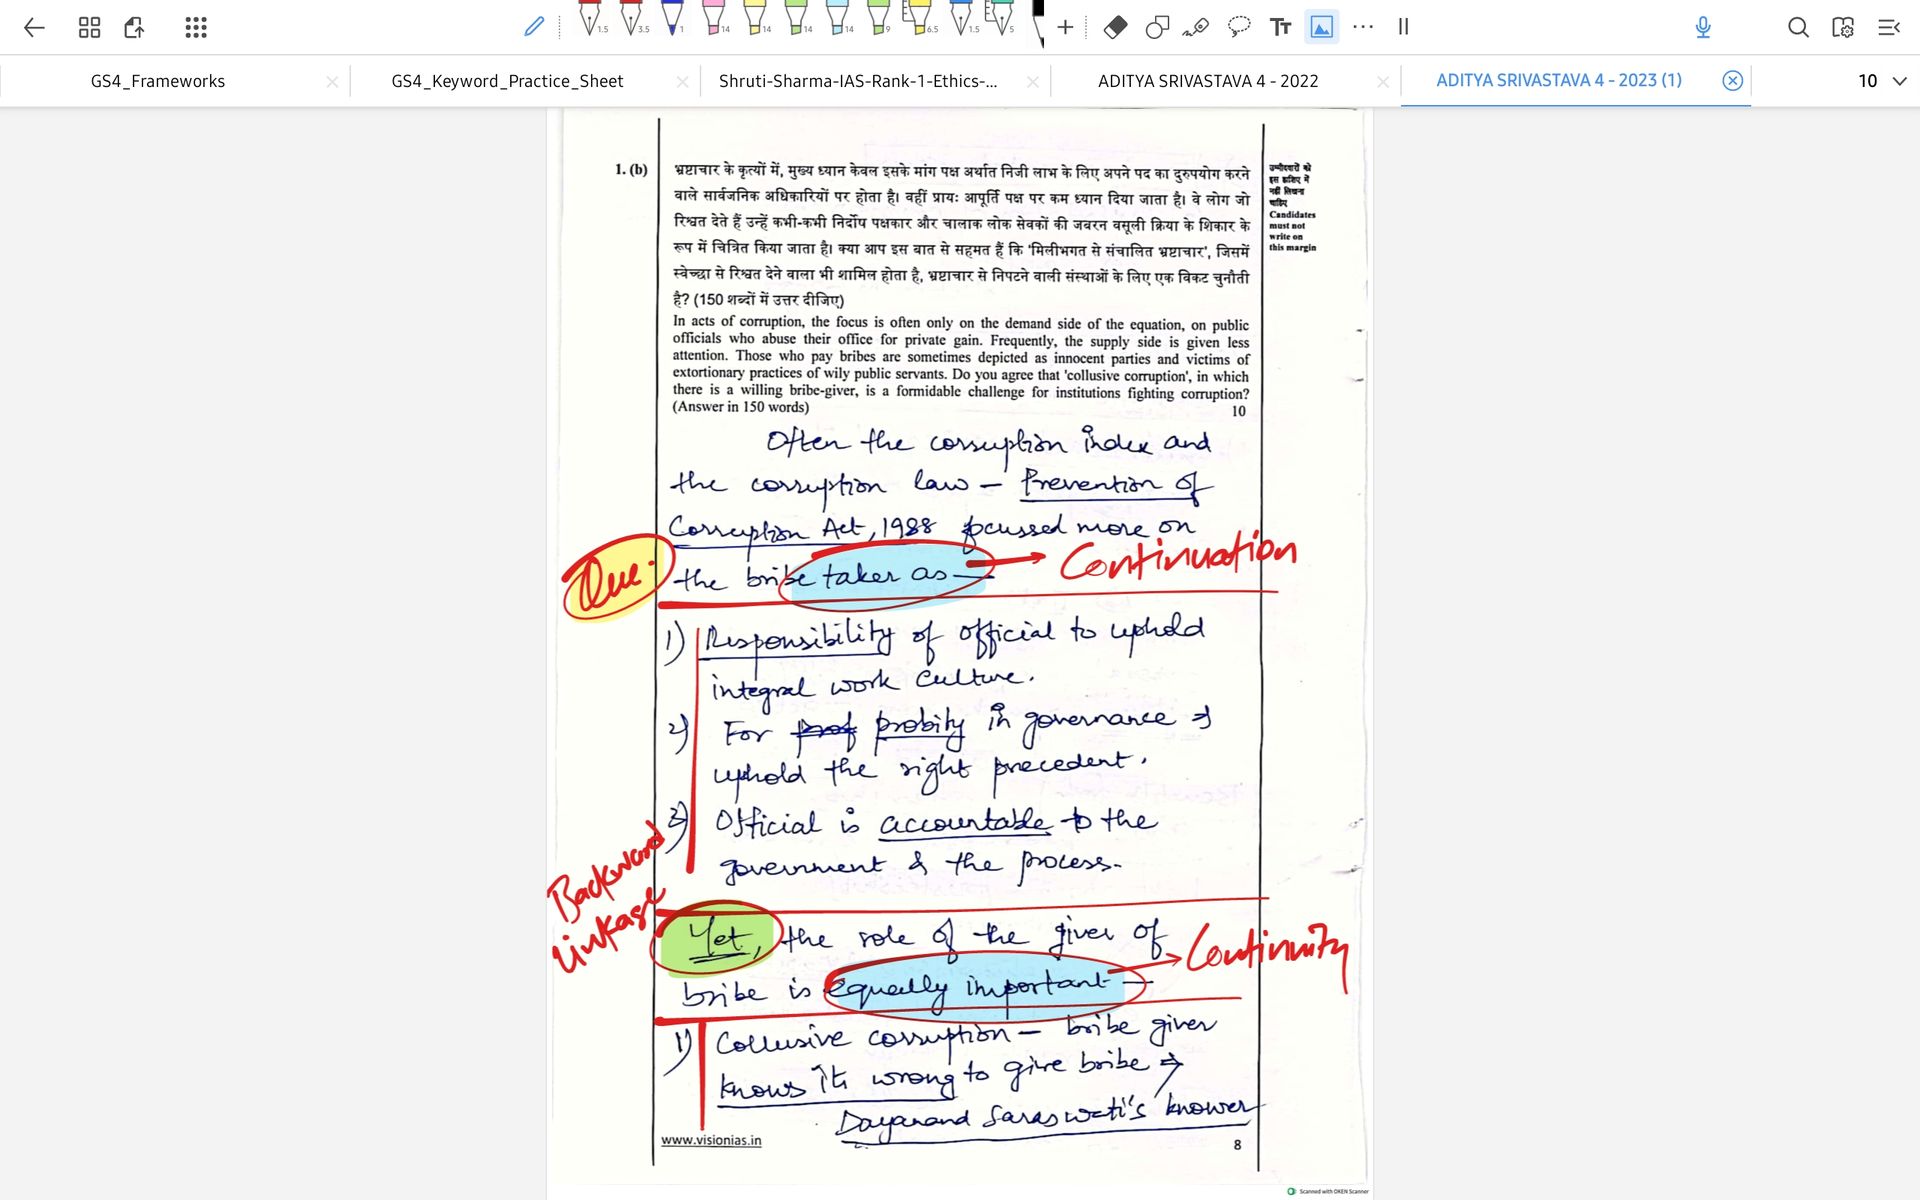 1.5
3.5
1
14
14
14
14
9
6.5
1.5
5
Tт
GS4_Frameworks
GS4_Keyword_Practice_Sheet
Shruti-Sharma-IAS-Rank-1-Ethics-...
ADITYA SRIVASTAVA 4 - 2022
ADITYA SRIVASTAVA 4 - 2023 (1)
10
1. (b)
भ्रष्टाचार के कृत्यों में, मुख्य ध्यान केवल इसके मांग पक्ष अर्थात निजी लाभ के लिए अपने पद का दुरुपयोग करने
वाले सार्वजनिक अधिकारियों पर होता है। वहीं प्रायः आपूर्ति पक्ष पर कम ध्यान दिया जाता है। वे लोग जो
रिश्वत देते हैं उन्हें कभी-कभी निर्दोष पक्षकार और चालाक लोक सेवकों की जबरन वसूली क्रिया के शिकार के
रूप में चित्रित किया जाता है। क्या आप इस बात से सहमत हैं कि 'मिलीभगत से संचालित भ्रष्टाचार', जिसमें
स्वेच्छा से रिश्वत देने वाला भी शामिल होता है, भ्रष्टाचार से निपटने वाली संस्थाओं के लिए एक विकट चुनौती
है? (150 शब्दों में उत्तर दीजिए)
In acts of corruption, the focus is often only on the demand side of the equation, on public
officials who abuse their office for private gain. Frequently, the supply side is given less
attention. Those who pay bribes are sometimes depicted as innocent parties and victims of
extortionary practices of wily public servants. Do you agree that 'collusive corruption', in which
there is a willing bribe-giver, is a formidable challenge for institutions fighting corruption?
(Answer in 150 words)
10
उम्मीदवारों को
इस हाशिए में
नहीं लिखना
चाहिए
Candidates
must not
write on
this margin
Often the corruption index and
the corruption law – Prevention of
Corruption Act, 1988 focussed more on
the bribe taker as —
Que.
Continuation
1) Responsibility of official to uphold
integral work culture.
2) For prof probity in governance →
uphold the right precedent.
3) Official is accountable to the
government & the process.
Backward
linkage
Yet, the role of the giver of
bribe is equally important —
Continuity
1) Collusive corruption – bribe giver
knows it's wrong to give bribe →
Dayanand Saraswati's 'knower
www.visionias.in
8
Scanned with OKEN Scanner